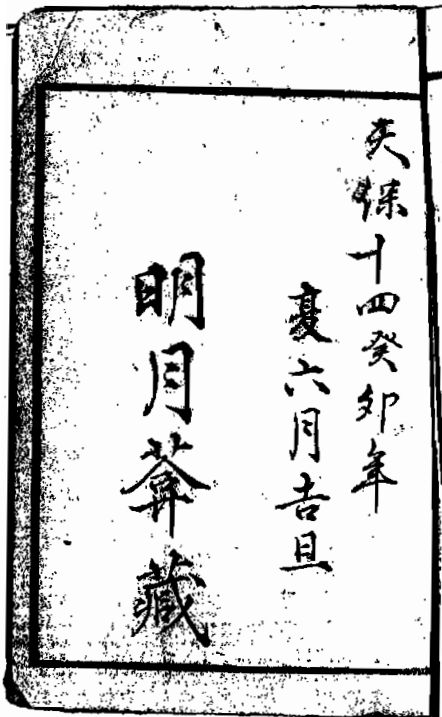 天保十四癸卯年
夏六月吉旦
明月葊藏